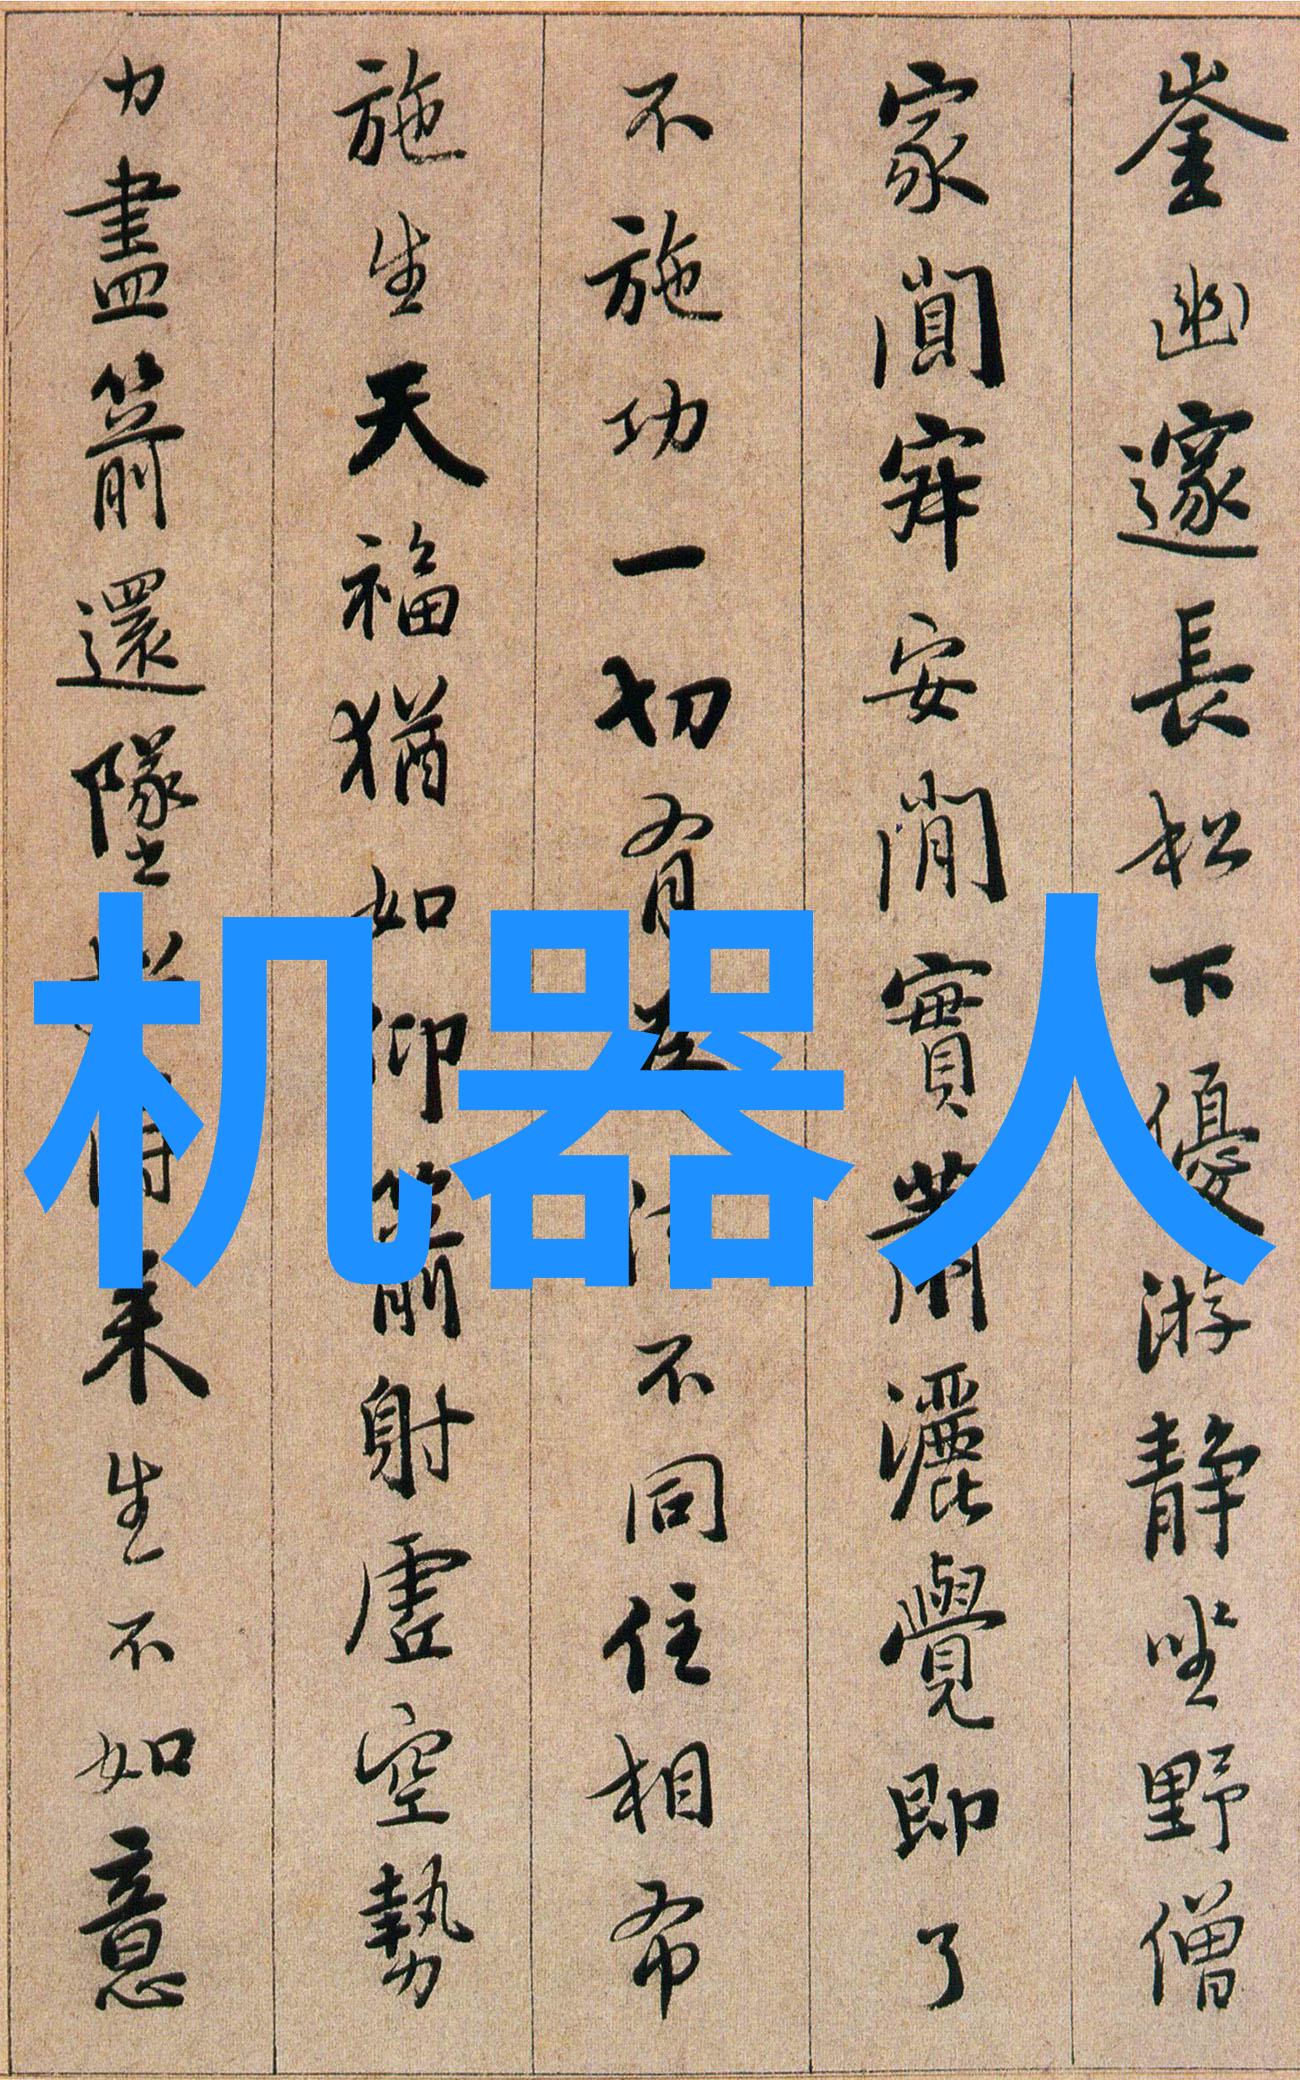 崟幽邃長松下優游靜坐野僧
家闃寂安閒實蕭灑覺即了
不施功一切有不同住相布
施生天福猶如仰箭射虛空勢
力盡箭還墜來生不如意
机器人